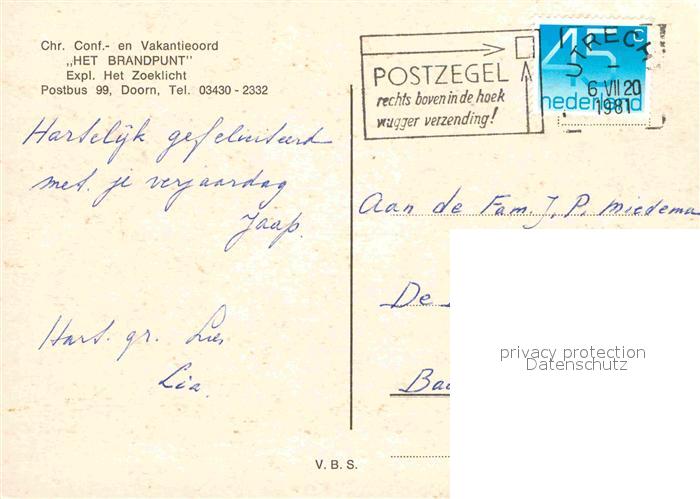 Chr. Conf.- en Vakantieoord
„HET BRANDPUNT"
Expl. Het Zoeklicht
Postbus 99, Doorn, Tel. 03430 - 2332
Hartelijk gefeliciteerd
met je verjaardag
Jaap.
Hart. gr.
Lia.
V. B. S.
POSTZEGEL
rechts boven in de hoek
vlugger verzending!
45 c
nederland
UTRECH
6 VII 20
1981
Aan de Fam. J. P. Miedema
De
Ba
privacy protection
Datenschutz